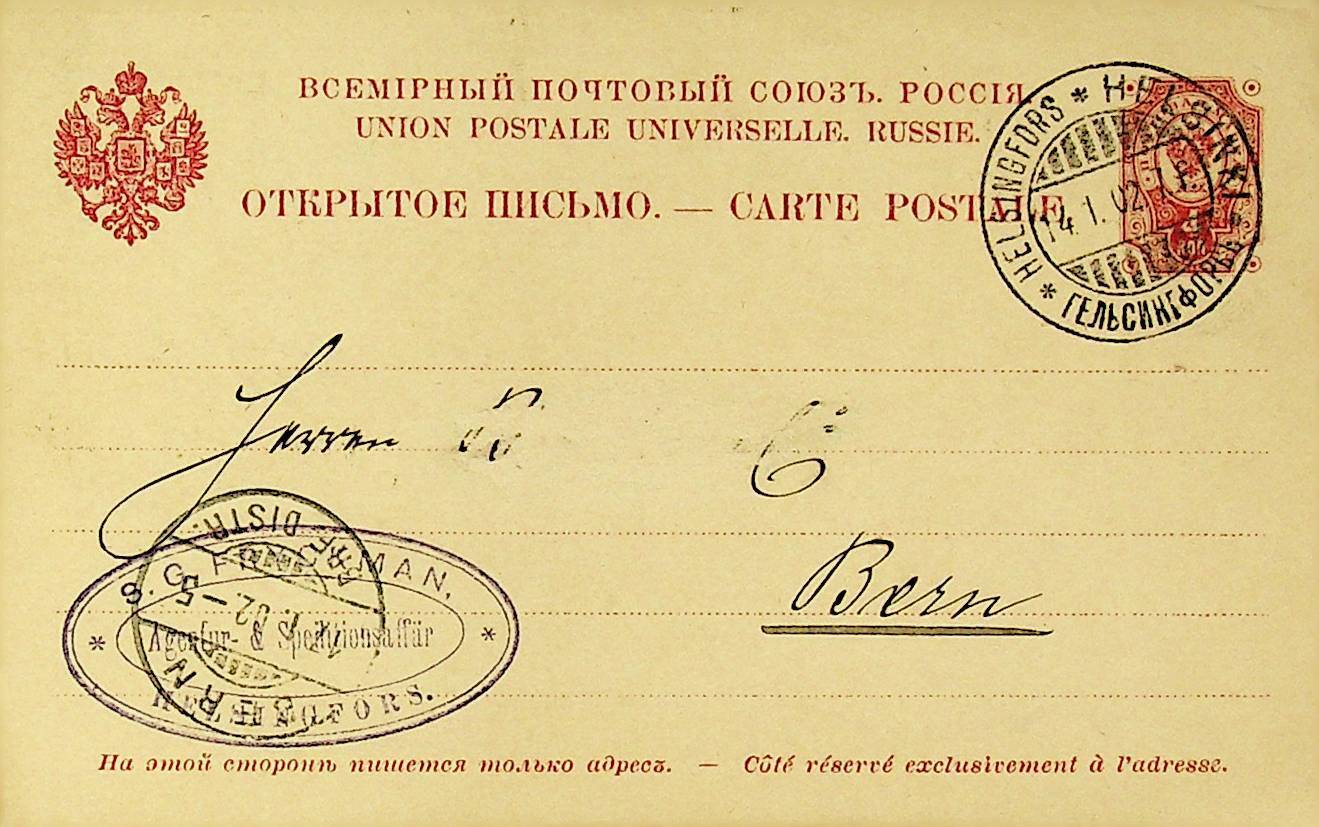 ВСЕМІРНЫЙ ПОЧТОВЫЙ СОЮЗЪ. РОССІЯ.
UNION POSTALE UNIVERSELLE. RUSSIE.
ОТКРЫТОЕ ПИСЬМО. — CARTE POSTALE
HELSINGFORS * HELSINKI * ГЕЛЬСИНГФОРСЪ *
14.1.02
Herren
C
Bern
BRF. DISTR.
BERN
02 — 5
S. G. MAN,
* Agentur- & Speditionsaffär *
HELSINGFORS.
На этой сторонѣ пишется только адресъ. — Côté réservé exclusivement à l'adresse.